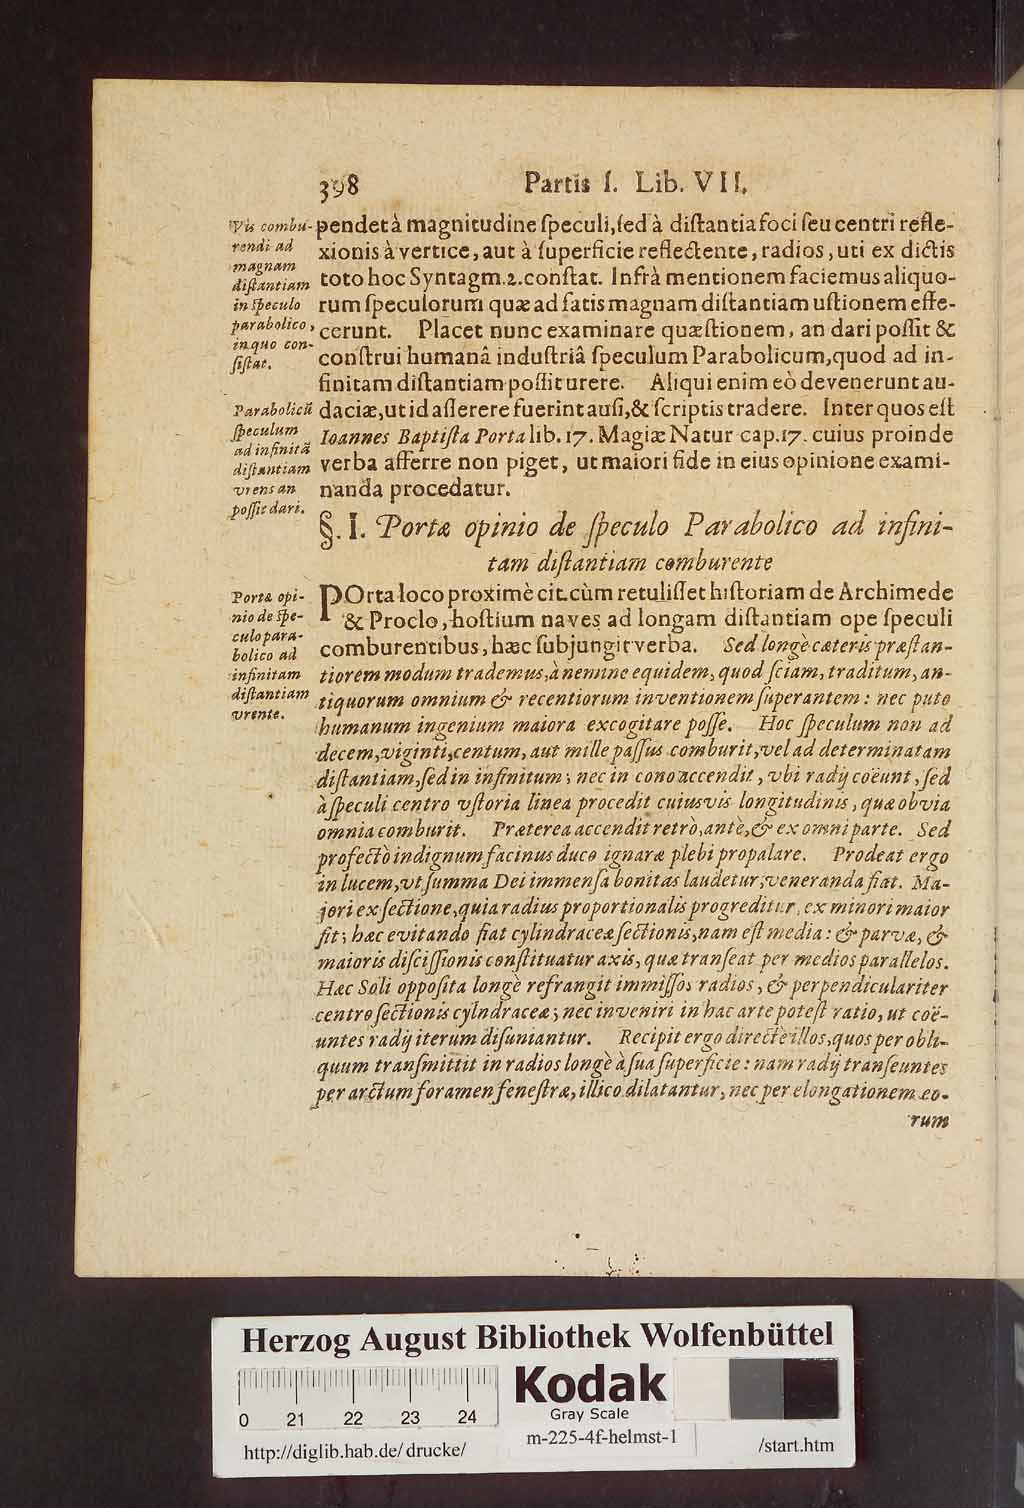 398 Partis I. Lib. VII.
Vis combu-
rendi ad
magnam
diſtantiam
in ſpeculo
parabolico,
in quo con-
ſiſtat.
pendet à magnitudine ſpeculi, ſed à diſtantia foci ſeu centri refle-
xionis à vertice, aut à ſuperficie reflectente, radios, uti ex dictis
toto hoc Syntagm. 2. conſtat. Infrà mentionem faciemus aliquo-
rum ſpeculorum quæ ad ſatis magnam diſtantiam uſtionem effe-
cerunt. Placet nunc examinare quæſtionem, an dari poſſit &
conſtrui humanâ induſtriâ ſpeculum Parabolicum, quod ad in-
finitam diſtantiam poſſit urere. Aliqui enim eò devenerunt au-
Parabolicũ
ſpeculum
ad infinitã
diſtantiam
vrens an
poſſit dari.
daciæ, ut id aſſerere fuerint auſi, & ſcriptis tradere. Inter quos eſt
Ioannes Baptiſta Porta lib. 17. Magiæ Natur cap. 17. cuius proinde
verba afferre non piget, ut maiori fide in eius opinione exami-
nanda procedatur.
§. I. Portæ opinio de ſpeculo Parabolico ad infini-
tam diſtantiam comburente
Portæ opi-
nio de ſpe-
culo para-
bolico ad
infinitam
diſtantiam
vrente.
POrta loco proximè cit. cùm retuliſſet hiſtoriam de Archimede
& Proclo, hoſtium naves ad longam diſtantiam ope ſpeculi
comburentibus, hæc ſubjungit verba. Sed longè cæteris præſtan-
tiorem modum trademus, à nemine equidem, quod ſciam, traditum, an-
tiquorum omnium & recentiorum inventionem ſuperantem: nec puto
humanum ingenium maiora excogitare poſſe. Hoc ſpeculum non ad
decem, viginti, centum, aut mille paſſus comburit, vel ad determinatam
diſtantiam, ſed in infinitum; nec in cono accendit, vbi radij coëunt, ſed
à ſpeculi centro vſtoria linea procedit cuiusvis longitudinis, quæ obvia
omnia comburit. Præterea accendit retrò, antè, & ex omni parte. Sed
profectò indignum facinus duco ignaræ plebi propalare. Prodeat ergo
in lucem, vt ſumma Dei immenſa bonitas laudetur, veneranda fiat. Ma-
jori ex ſectione, quia radius proportionalis progreditur, ex minori maior
fit; hæc evitando fiat cylindraceæ ſectionis, nam eſt media: & parvæ, &
maioris diſciſſionis conſtituatur axis, quæ tranſeat per medios parallelos.
Hæc Soli oppoſita longè refrangit immiſſos radios, & perpendiculariter
centro ſectionis cylndraceæ; nec inveniri in hac arte poteſt ratio, ut coë-
untes radij iterum diſuniantur. Recipit ergo directè illos, quos per obli-
quum tranſmittit in radios longè à ſua ſuperficie: nam radij tranſeuntes
per arctum foramen feneſtræ, illico dilatantur, nec per elongationem eo-
rum
Herzog August Bibliothek Wolfenbüttel
0 21 22 23 24
Kodak
Gray Scale
http://diglib.hab.de/drucke/
m-225-4f-helmst-1
/start.htm